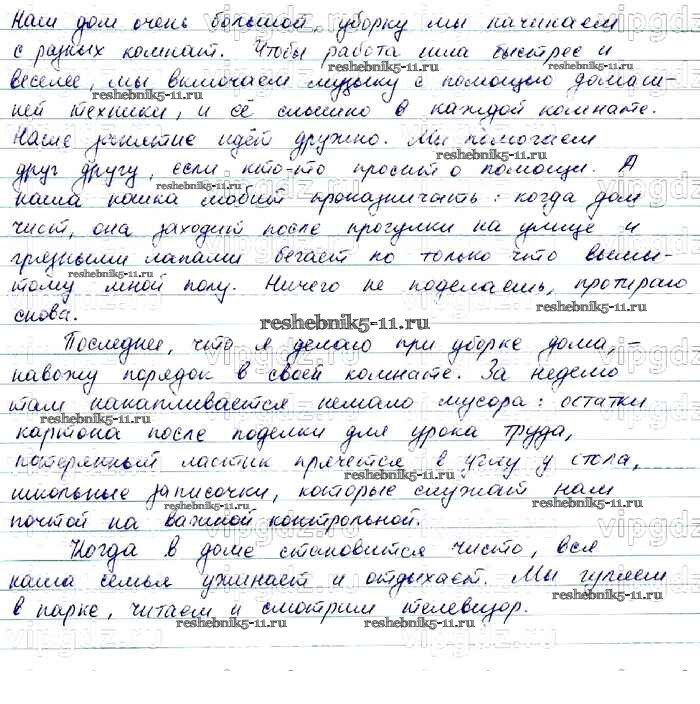 Наш дом очень большой, уборку мы начинаем
с разных комнат. Чтобы работа шла быстрее и
веселее мы включаем музыку с помощью домаш-
ней техники, и её слышно в каждой комнате.
Наше занятие идёт дружно. Мы помогаем
друг другу, если кто-то просит о помощи. А
наша кошка любит проказничать: когда дом
чист, она заходит после прогулки на улице и
грязными лапами бегает по только что вымы-
тому мной полу. Ничего не поделаешь, протираю
снова.
Последнее, что я делаю при уборке дома, -
навожу порядок в своей комнате. За неделю
там накапливается немало мусора: остатки
картона после поделки для урока труда,
потерянный ластик прячется в углу у стола,
школьные записочки, которые служат нам
почтой на важной контрольной.
Когда в доме становится чисто, вся
наша семья ужинает и отдыхает. Мы гуляем
в парке, читаем и смотрим телевизор.
reshebnik5-11.ru
vipgdz.ru